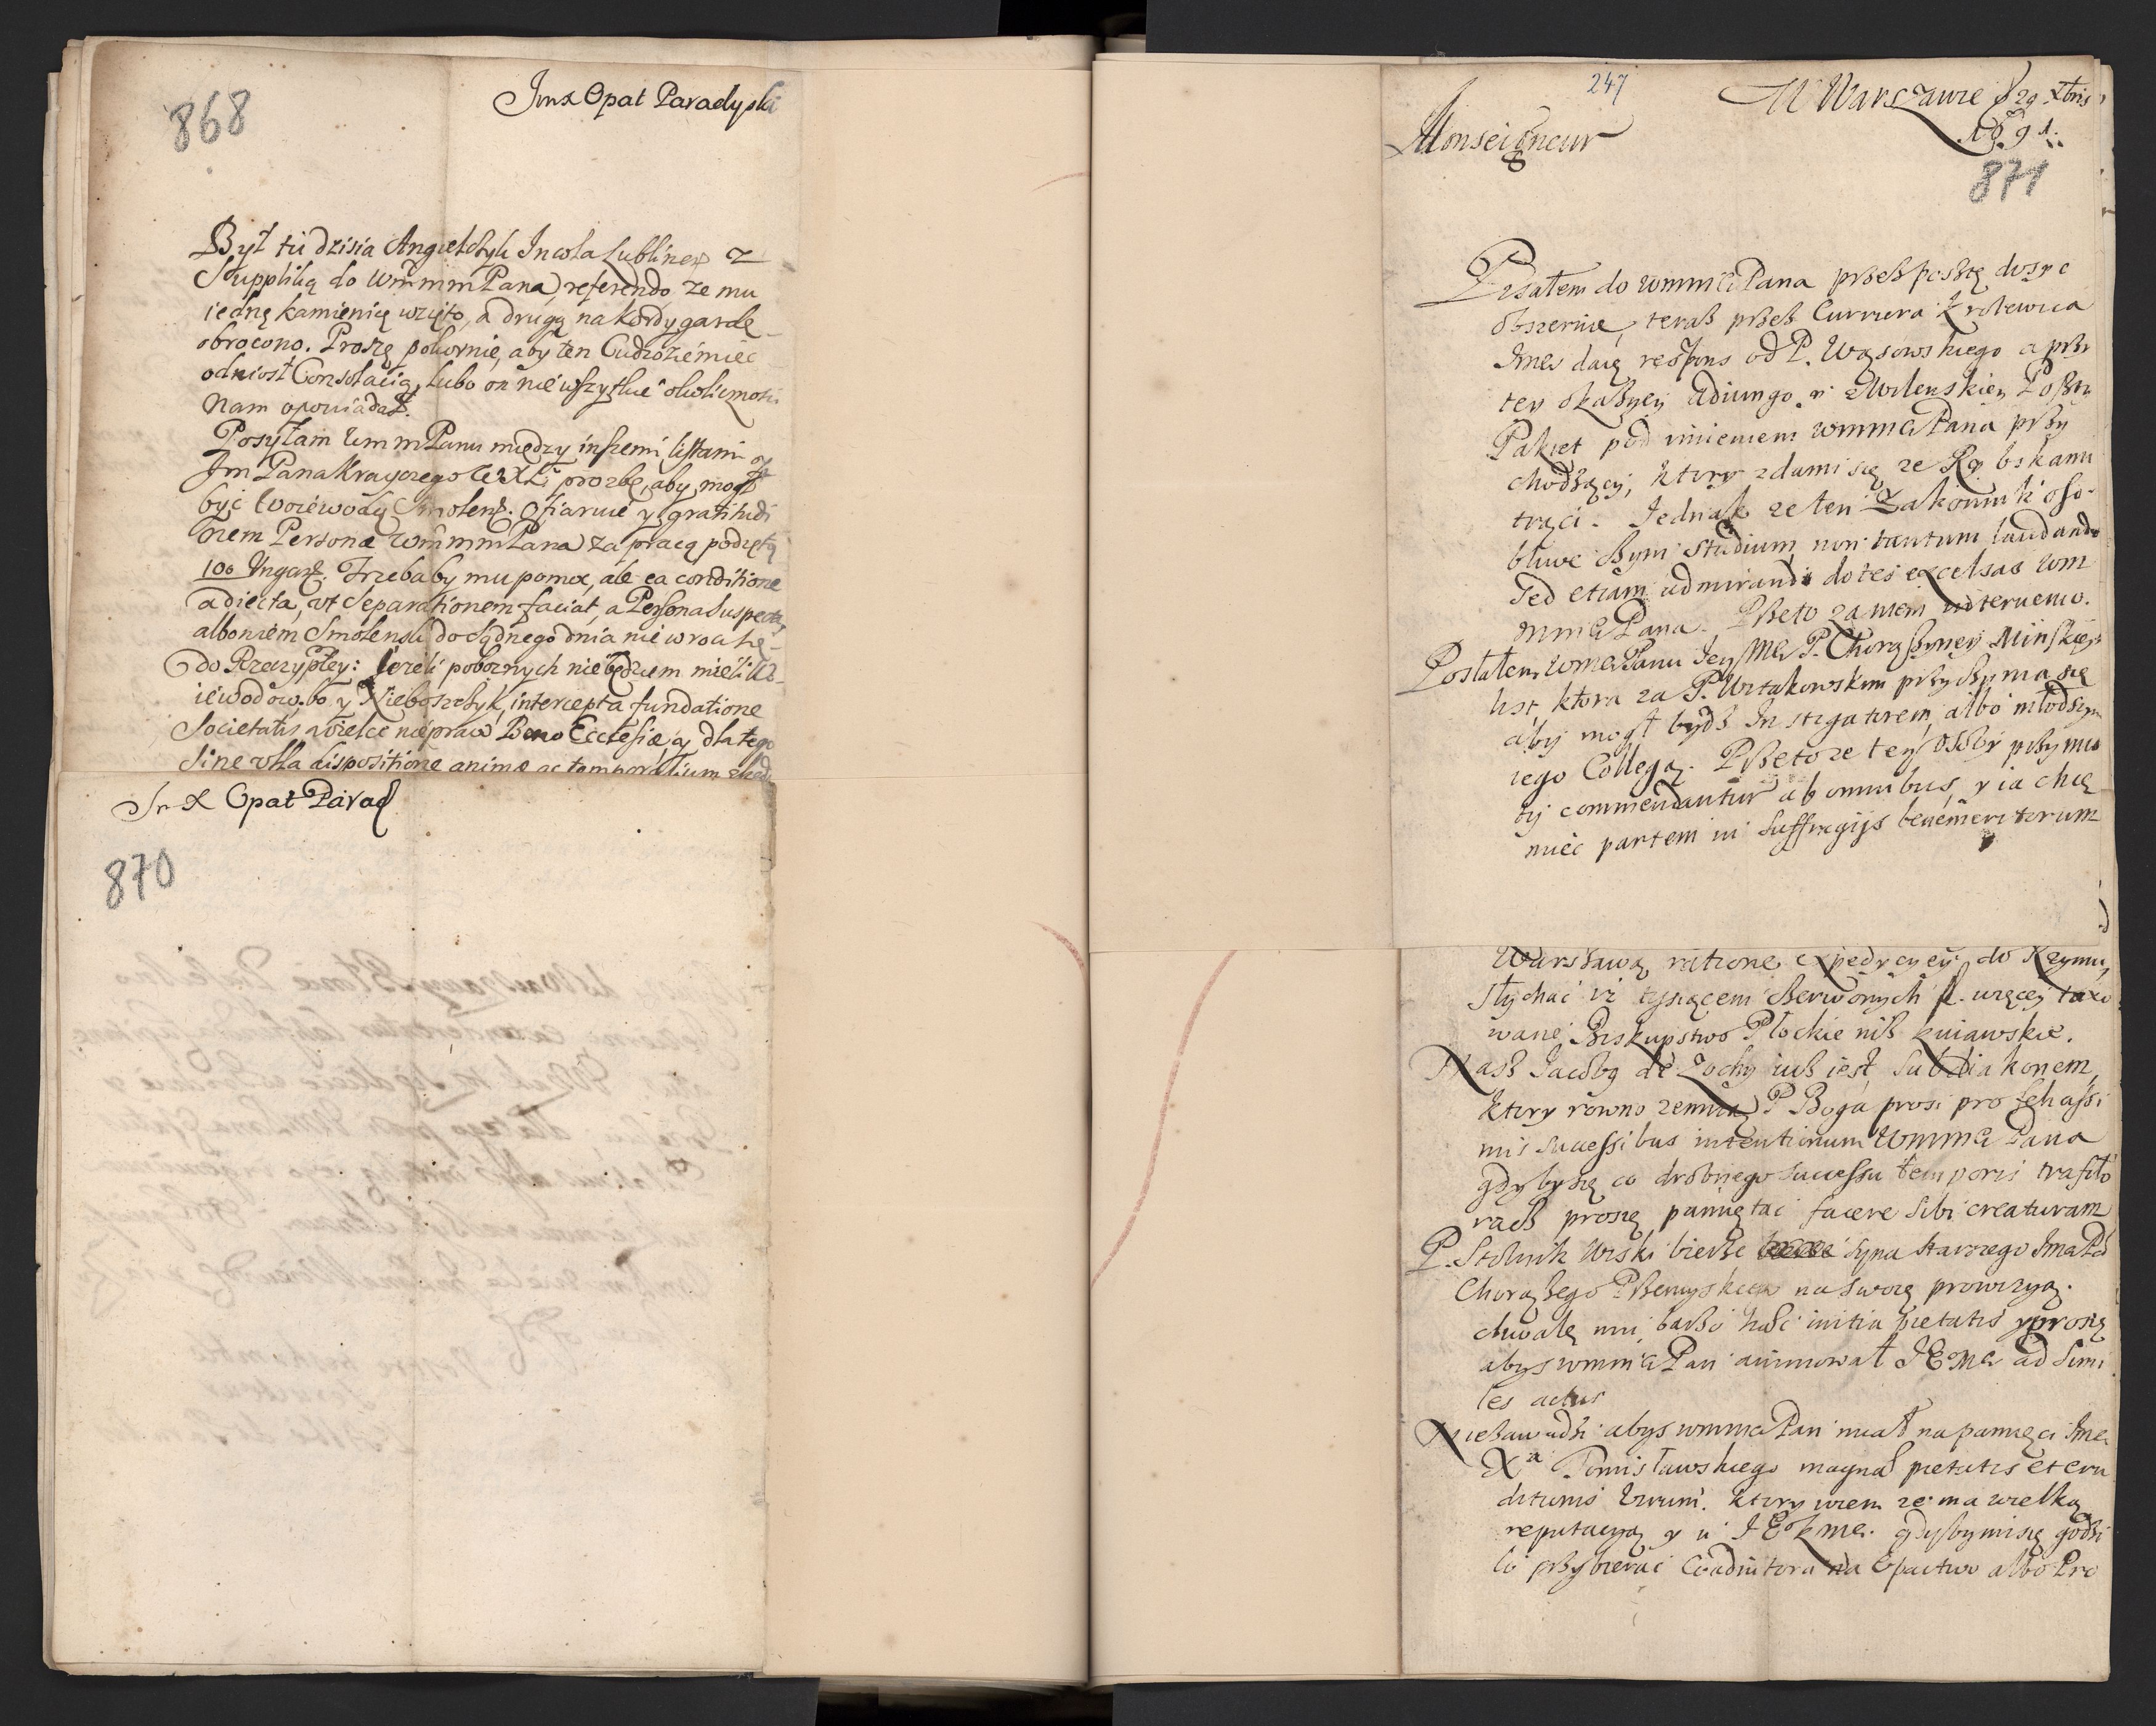 868
Jmx Opat Paradyski
Był tu dzisia Angielchyk Incola Lublinen z
Suppliką do WmmmPana, referendo ze mu
iednę kamienicę wzięto, a drugą na kordygardę
obrocono. Proszę pokornie, aby ten Cudzoźiemiec
odniosł Consolacią, lubo on nie wszystkie okolicznosci
nam opowiadał.
Posyłam WmmPanu między inszemi listami
Jm Pana Krayczego WXL prozbę, aby mogł
być Woiewodą Smolens. Ofiaruie y gratitudi
nem Personæ WmmmPana za pracą podiętą
100 Ungar. Trzeba by mu pomoc, ale ea conditione
adiecta, vt separationem faciat, a Persona suspecta,
albowiem Smolensk do sądnego dnia nie wroci się
do Rzeczyptey: ieżeli pobocznych nie będziem mieli Wo-
iewodow, bo y Nieboszczyk, intercepta fundatione
Societatis wielce nie praw Bono Ecclesiæ, y dla tego
Sine vlla dispositione animæ ac temporalium
Jr X Opat Parad
870
247
W Warszawie d 29 Xbris
1691.
Monseigneur
871
Pisałem do WmmCiPana przez posztę dosyc
obszernie, teraz przez Curriera Krolewica
Jmci daię respons od P. Wąsowskiego a przy
tey okazyey adiungo y z Wilenskiey Poszty
Pakiet pod imieniem WmmCiPana przy
chodzący, ktory zda mi się ze Xx biskanu
trąci. Jednak ze ten Zakonnik oso-
bliwe czyni studium non tantum laudando
sed etiam admirando dotes excelsas Wm
mmCiPana. Przeto za niem interweniuo.
Posłałem WmCiPanu Jey Mci P. Chorązyney Minskiey
list, ktora za P. Wrtakowskim przyczynia się
aby mogł bydz Instigatorem, albo młodszym
iego Collegą. Przeto ze tey osoby przymio
ty commendantur ab omnibus, y ia chcę
miec partem in suffragijs benemeritorum
Warszawą ratione expedycyey do Rzymu,
słychać iż tysiącem Czerwonych f. więcey taxo
wane Biskupstwo Płockie niż kuiawskie.
Nasz Jacobg de Zochy iuż iest Subdiakonem,
ktory rowno zemną P. Boga prosi pro felicissi
mis successibus intentionum WmmCi Pana
gdyby się co drobnego successu temporis trafiło
racz proszę pamiętać facere sibi creaturam
P. Stolnik Wiski bierze syna starszego JmciPa
Chorązego Przemyskiego na swoię prowizyą.
chwalę mu barzo hasc initia pietatis y proszę
abys WmmCiPan animował JEMci ad simi
les actus
Niezawadzi abys WmmCiPan miał na pamięci Jmci
Xa Tomisławskiego magnæ pietatis et eru
ditionis Virum. ktory wiem ze ma wielką
reputacyą y u JEKMci. gdyby mi się godzi
ło przybierać Coadiutora na Opactwo albo Pro